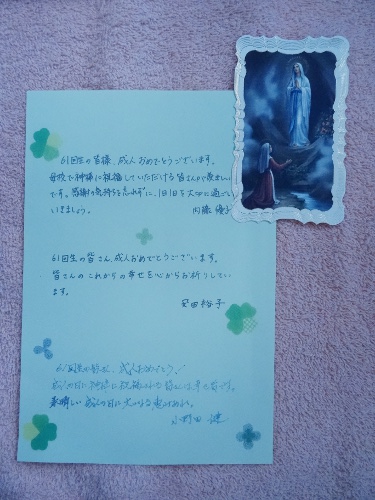 61回生の皆様、成人おめでとうございます。
母校で神様に祝福していただける皆さんが羨ましい
です。感謝の気持ちを忘れずに、1日1日を大切に過ごして
いきましょう。 内藤
61回生の皆さん、成人おめでとうございます。
皆さんのこれからの幸せを心からお祈りしてい
ます。
安田裕子
61回生の皆さん、成人おめでとう!
成人の日に神様に祝福される皆さんは幸せです。
素晴しい成人の日に
小野田